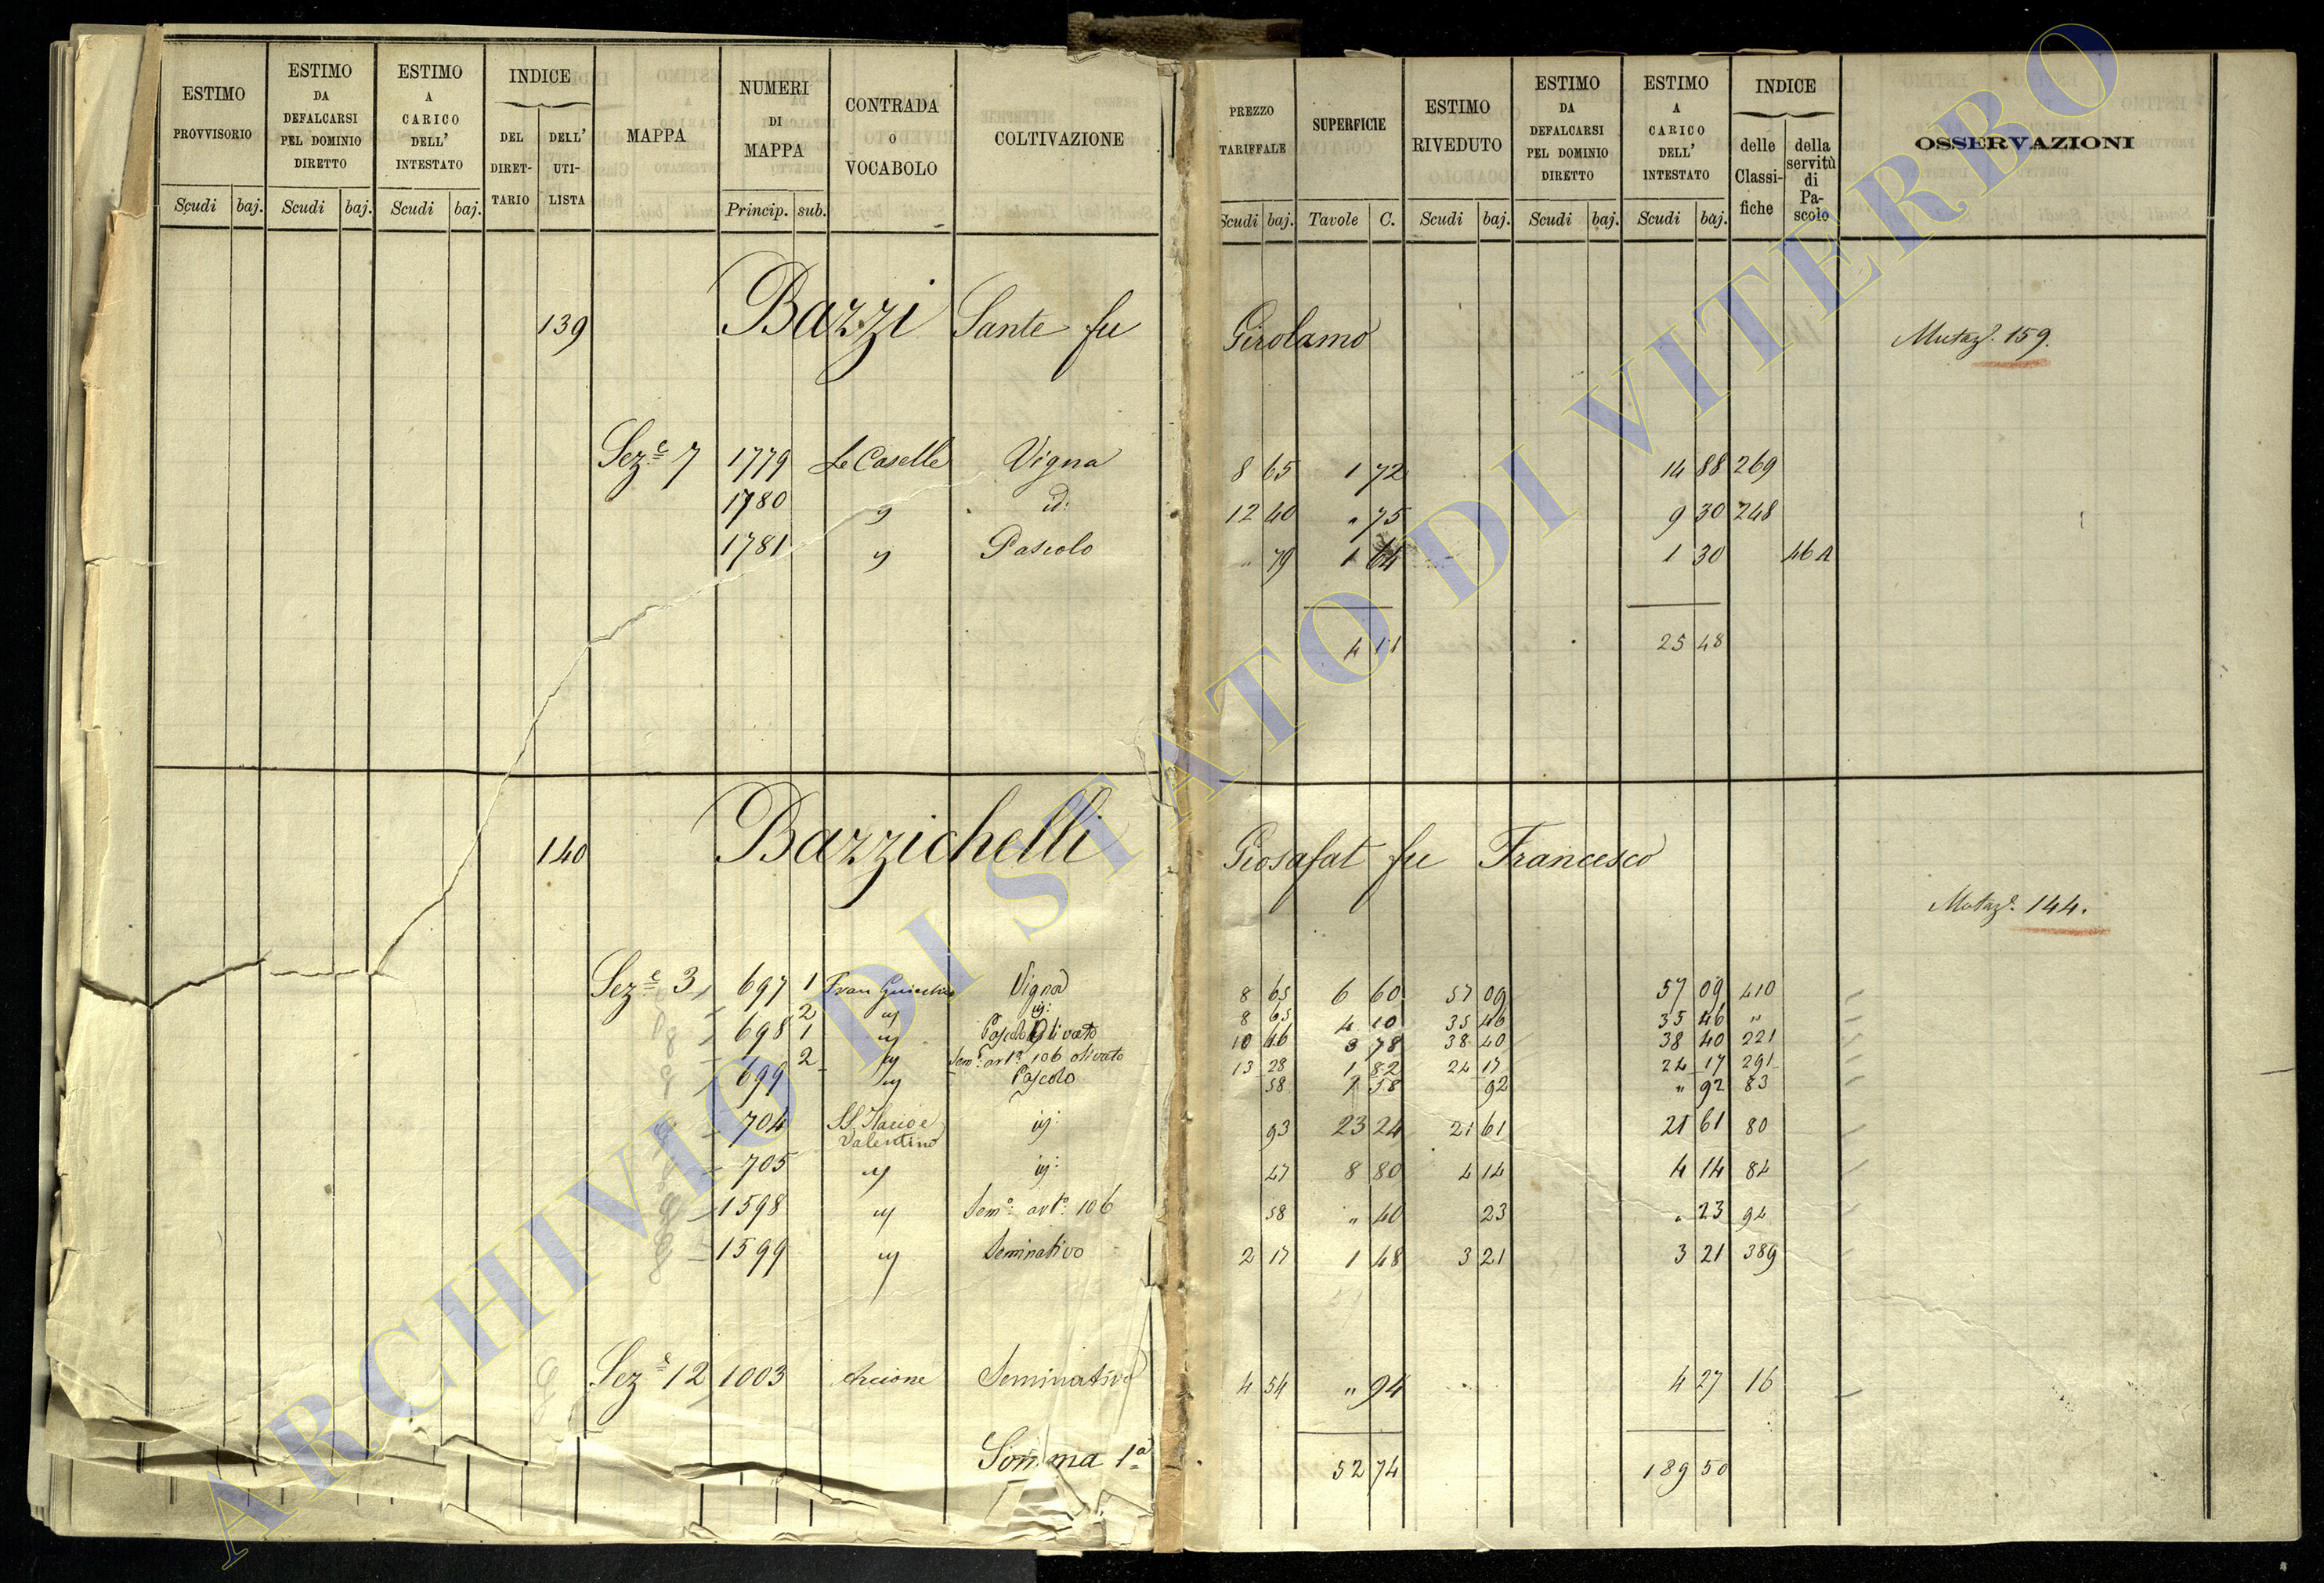 ESTIMO PROVVISORIO | ESTIMO DA DEFALCARSI PEL DOMINIO DIRETTO | ESTIMO A CARICO DELL' INTESTATO | INDICE DEL DIRET-TARIO | DELL' UTI-LISTA | MAPPA | NUMERI DI MAPPA | CONTRADA O VOCABOLO | COLTIVAZIONE | PREZZO TARIFFALE | SUPERFICIE | ESTIMO RIVEDUTO | ESTIMO DA DEFALCARSI PEL DOMINIO DIRETTO | ESTIMO A CARICO DELL' INTESTATO | INDICE delle Classi-fiche | della servitù di Pa-scolo | OSSERVAZIONI
Scudi baj. Scudi baj. Scudi baj. Princip. sub. Scudi baj. Tavole C. Scudi baj. Scudi baj. Scudi baj.
139 Bazzi Sante fu Girolamo Mutaz.e 159.
Sez.e 7 1779 Le Caselle Vigna 8 65 1 72 14 88 269
1780 " id: 12 40 " 75 9 30 248
1781 " Pascolo " 79 1 64 1 30 46 A
4 11 25 48
140 Bazzichelli Giosafat fu Francesco
Mutaz.e 144.
Sez.e 3 697 1 Vigna 8 65 6 60 57 09 57 09 410
2 " id: 8 65 4 10 35 46 35 46 "
698 1 " Pascolo Olivato 10 46 3 78 38 40 38 40 221
2 " Sem.o art.o 106 olivato 13 28 1 82 24 17 24 17 291
699 " Pascolo 58 1 58 92 " 92 83
704 SS. Ilario e Valentino id: 93 23 24 21 61 21 61 80
705 " id: 47 8 80 4 14 4 14 84
1598 " Sem.o art.o 106 58 " 40 23 " 23 94
1599 " Seminativo 2 17 1 48 3 21 3 21 389
Sez.e 12 1003 Arcione Seminativo 4 54 " 94 4 27 16
Somma 1a 52 74 189 50
ARCHIVIO DI STATO DI VITERBO